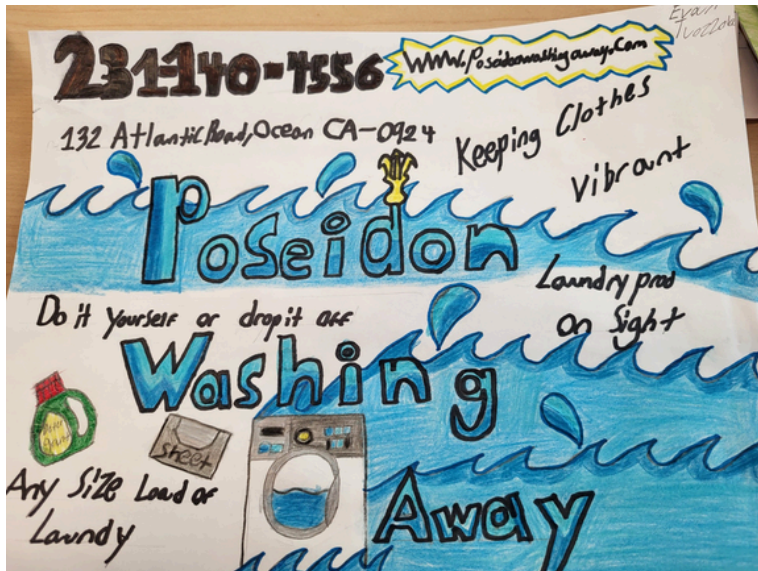 Evan
231-140-4556
www.Poseidonwashingaway.com
132 Atlantic Road, Ocean CA-0924
Keeping Clothes
Vibrant
Poseidon
Laundry prod
on Sight
Do it yourself or drop it off
Washing
Deter
gent
sheet
Any Size Load of
Laundy
Away